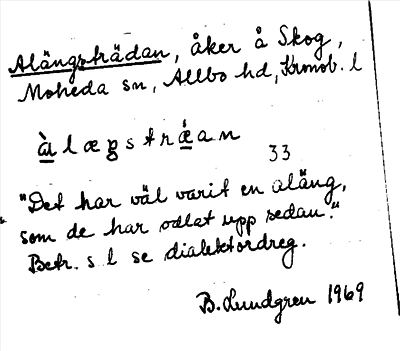 Alängsträdan, åker å Skog,
Moheda sn, Allbo hd, Kronob. l
à l æ g s t r ǽ a n
33
"Det har väl varit en aläng,
som de har odlat upp sedan."
Betr. s. l se dialektordreg.
B. Lundgren 1969